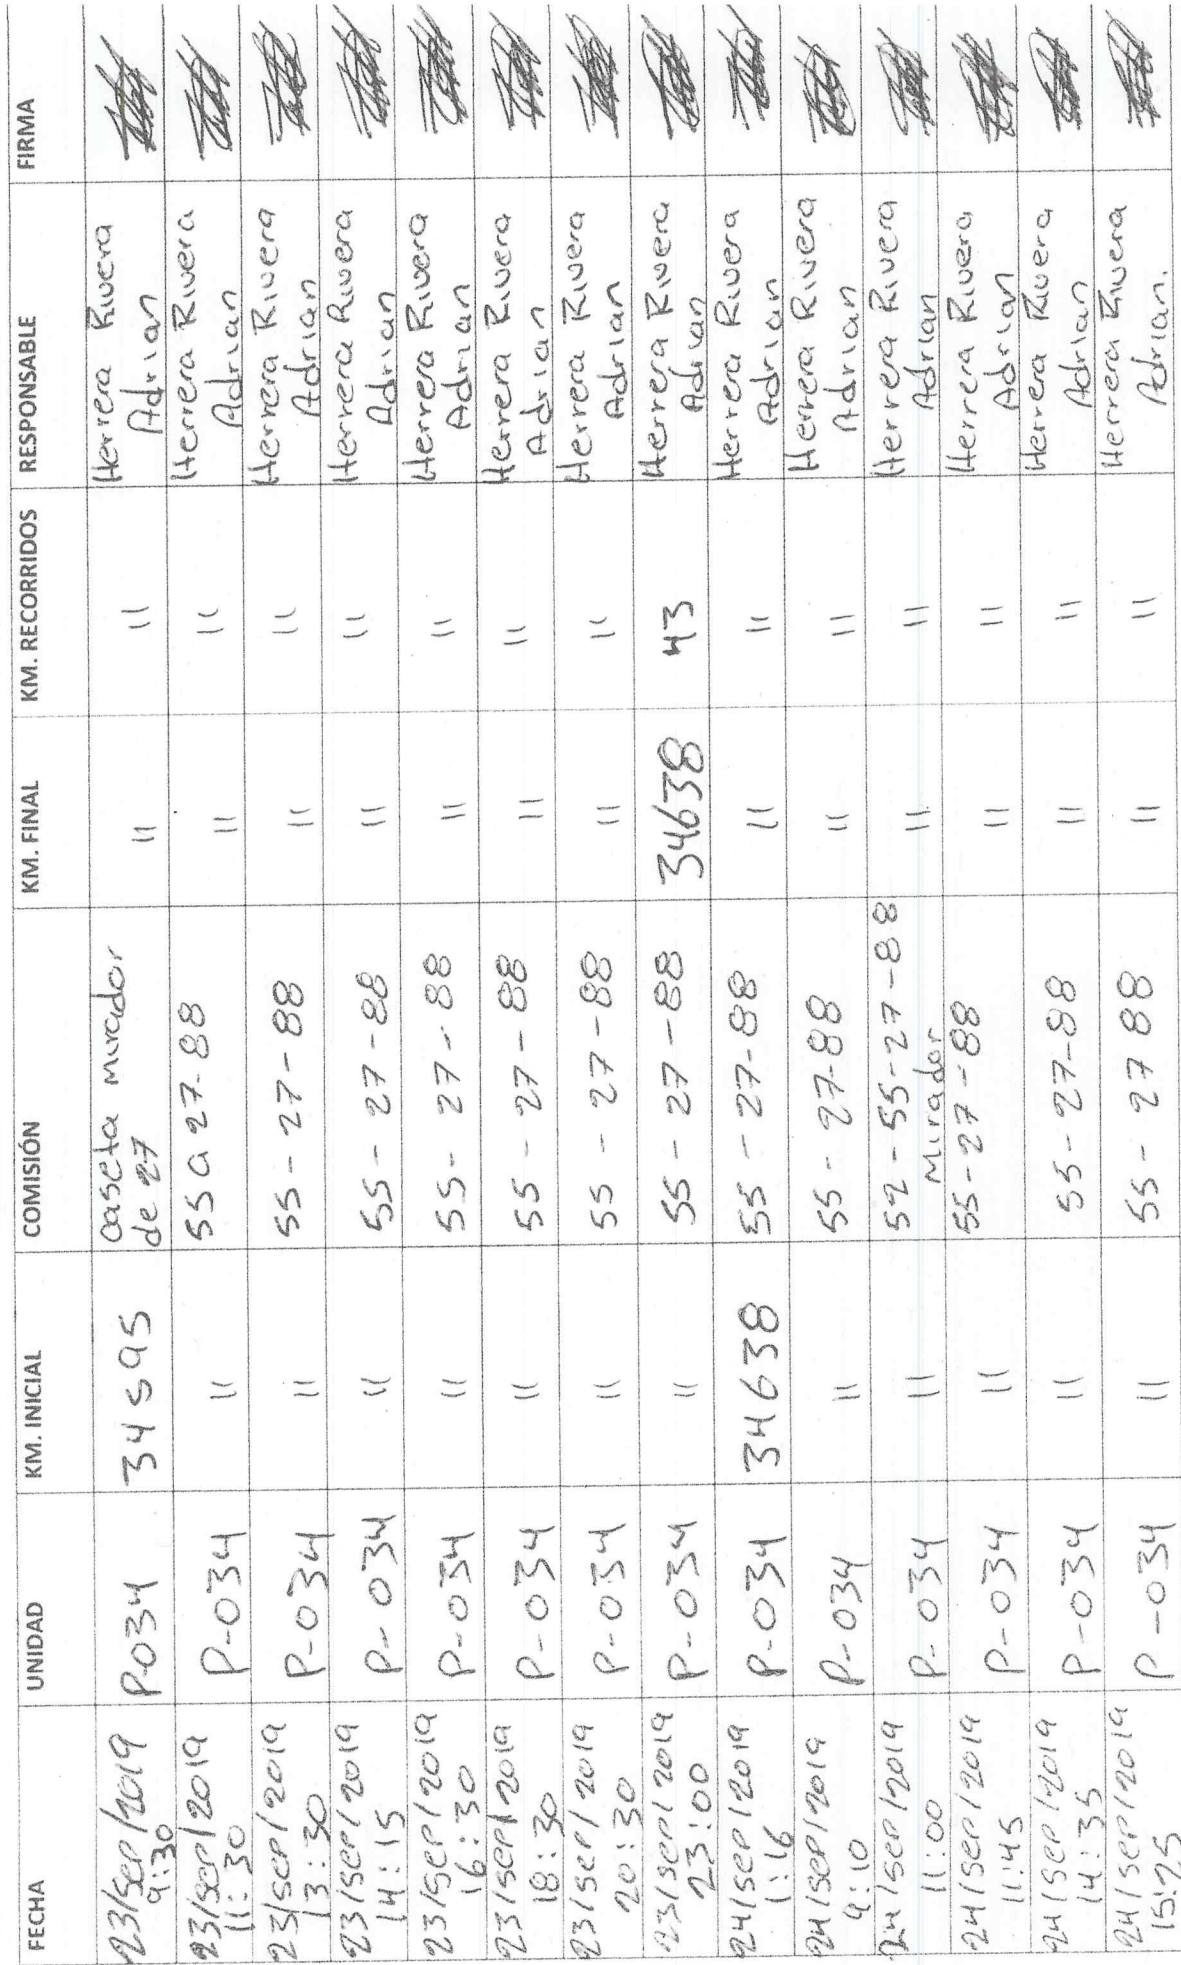 FECHA UNIDAD KM. INICIAL COMISIÓN KM. FINAL KM. RECORRIDOS RESPONSABLE FIRMA
23/sep/2019 P-034 34595 caseta mirador " " Herrera Rivera
9:30 de 27 Adrian
23/sep/2019 P-034 " 55 a 27-88 " " Herrera Rivera
11:30 Adrian
23/sep/2019 P-034 " 55 - 27 - 88 " " Herrera Rivera
13:30 Adrian
23/sep/2019 P-034 " 55 - 27 - 88 " " Herrera Rivera
14:15 Adrian
23/sep/2019 P-034 " 55 - 27 - 88 " " Herrera Rivera
16:30 Adrian
23/sep/2019 P-034 " 55 - 27 - 88 " " Herrera Rivera
18:30 Adrian
23/sep/2019 P-034 " 55 - 27 - 88 " " Herrera Rivera
20:30 Adrian
23/sep/2019 P-034 " 55 - 27 - 88 34638 43 Herrera Rivera
23:00 Adrian
24/sep/2019 P-034 34638 55 - 27-88 " " Herrera Rivera
1:16 Adrian
24/sep/2019 P-034 " 55 - 27-88 " " Herrera Rivera
9:10 Adrian
24/sep/2019 P-034 " 52 - 55 - 27 - 88 " " Herrera Rivera
11:00 Mirador Adrian
24/sep/2019 P-034 " 55-27-88 " " Herrera Rivera
11:45 Adrian
24/sep/2019 P-034 " 55 - 27-88 " " Herrera Rivera
14:35 Adrian
24/sep/2019 P-034 " 55 - 27 88 " " Herrera Rivera
15:25 Adrian.